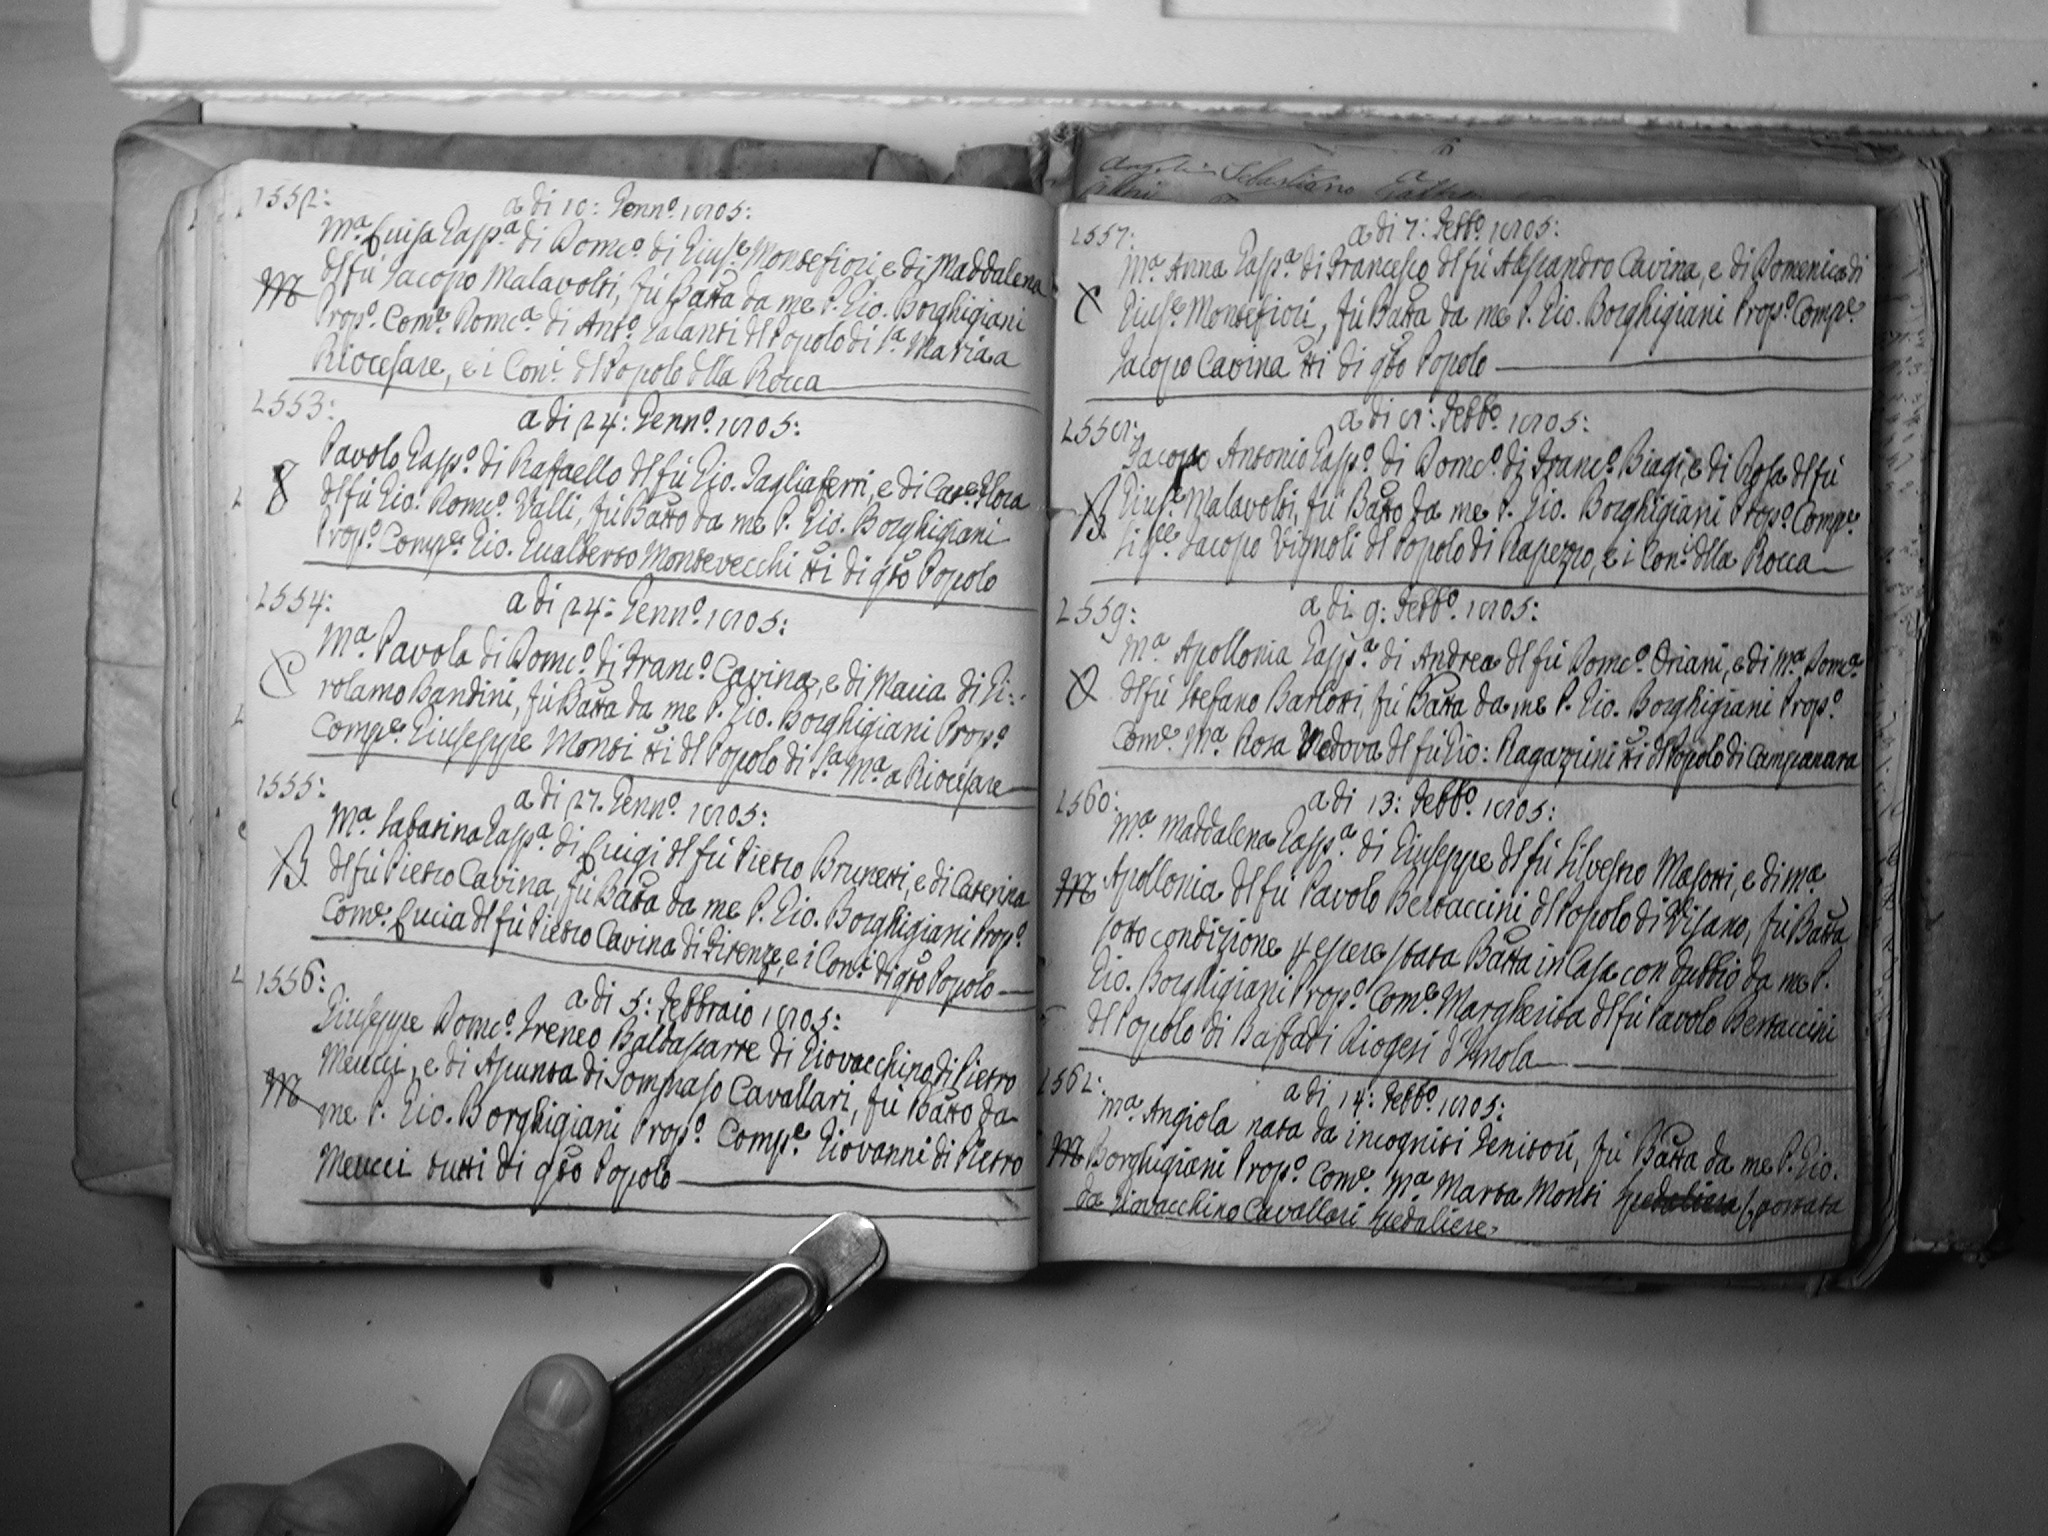 1552:
a di 10: Genn.º 1805:
M.ª Luisa Gasp.ª di Dom.co di Gius.e Montefiori, e di Maddalena
dl fù Jacopo Malavolti, fù Batta da me P. Gio. Borghigiani
M
Prop.º Com.e Dom.ca di Ant.º Galanti dl Popolo di S.ª Maria a
Riocesare, e i Con.i dl Popolo dlla Rocca
1553:
a di 24: Genn.º 1805:
Pavolo Gasp.º di Raffaello dl fù Gio. Tagliaferri, e di Cat.e Flora
dl fù Gio: Dom.co Valli, fù Batto da me P. Gio. Borghigiani
Prop.º Comp.e Gio. Gualberto Montevecchi tti di qto Popolo
1554:
a di 24: Genn.º 1805:
M.ª Pavola di Dom.co di Franc.º Cavina, e di Maria di Gi:
C
rolamo Bandini, fù Batta da me P. Gio. Borghigiani Prop.º
Comp.e Giuseppe Monti tti dl Popolo di S.ª M.ª a Riocesare
1555:
a di 27. Genn.º 1805:
M.ª Sabatina Gasp.ª di Luigi dl fù Pietro Brunetti, e di Caterina
B
dl fù Pietro Cavina, fù Batta da me P. Gio. Borghigiani Prop.º
Com.e Lucia dl fù Pietro Cavina di Firenze, e i Con.i di qto Popolo
1556:
a di 5: Febbraio 1805:
Giuseppe Dom.co Ireneo Baldassarre di Giovacchino di Pietro
Meucci, e di Assunta di Tommaso Cavallari, fù Batto da
M
me P. Gio. Borghigiani Prop.º Comp.e Giovanni di Pietro
Meucci tutti di qto Popolo
Angeli Sebastiano
1557:
a di 7: Febb.º 1805:
M.ª Anna Gasp.ª di Francesco dl fù Alessandro Cavina, e di Domenica di
C
Gius.e Montefiori, fù Batta da me P. Gio. Borghigiani Prop.º Comp.e
Jacopo Cavina tti di qto Popolo
1558:
a di 8: Febb.º 1805:
Jacopo Antonio Gasp.º di Dom.co di Franc.º Biagi, e di Rosa dl fù
B
Gius.e Malavolti, fù Batto da me P. Gio. Borghigiani Prop.º Comp.e
Sig.re Jacopo Vignoli dl Popolo di Rapezzo, e i Con.i dlla Rocca
1559:
a di 9: Febb.º 1805:
M.ª Apollonia Gasp.ª di Andrea dl fù Dom.co Oriani, e di M.ª Dom.ca
O
dl fù Stefano Barlotti, fù Batta da me P. Gio. Borghigiani Prop.º
Com.e M.ª Rosa Vedova dl fù Gio: Ragazzini tti dl Popolo di Campanara
1560:
a di 13: Febb.º 1805:
M.ª Maddalena Gasp.ª di Giuseppe dl fù Silvestro Masotti, e di M.ª
M
Apollonia dl fù Pavolo Bertaccini dl Popolo di Visano, fù Batta
sotto condizione p essere stata Batta in Casa con dubbio da me P.
Gio. Borghigiani Prop.º Com.e Margherita dl fù Pavolo Bertaccini
dl Popolo di Baffadi Diogesi d'Imola
1561:
a di 14: Febb.º 1805:
M.ª Angiola nata da incogniti Genitori, fù Batta da me P. Gio.
M
Borghigiani Prop.º Com.e M.ª Marta Monti Spedaliera portata
da Giovacchino Cavallari Spedaliere.